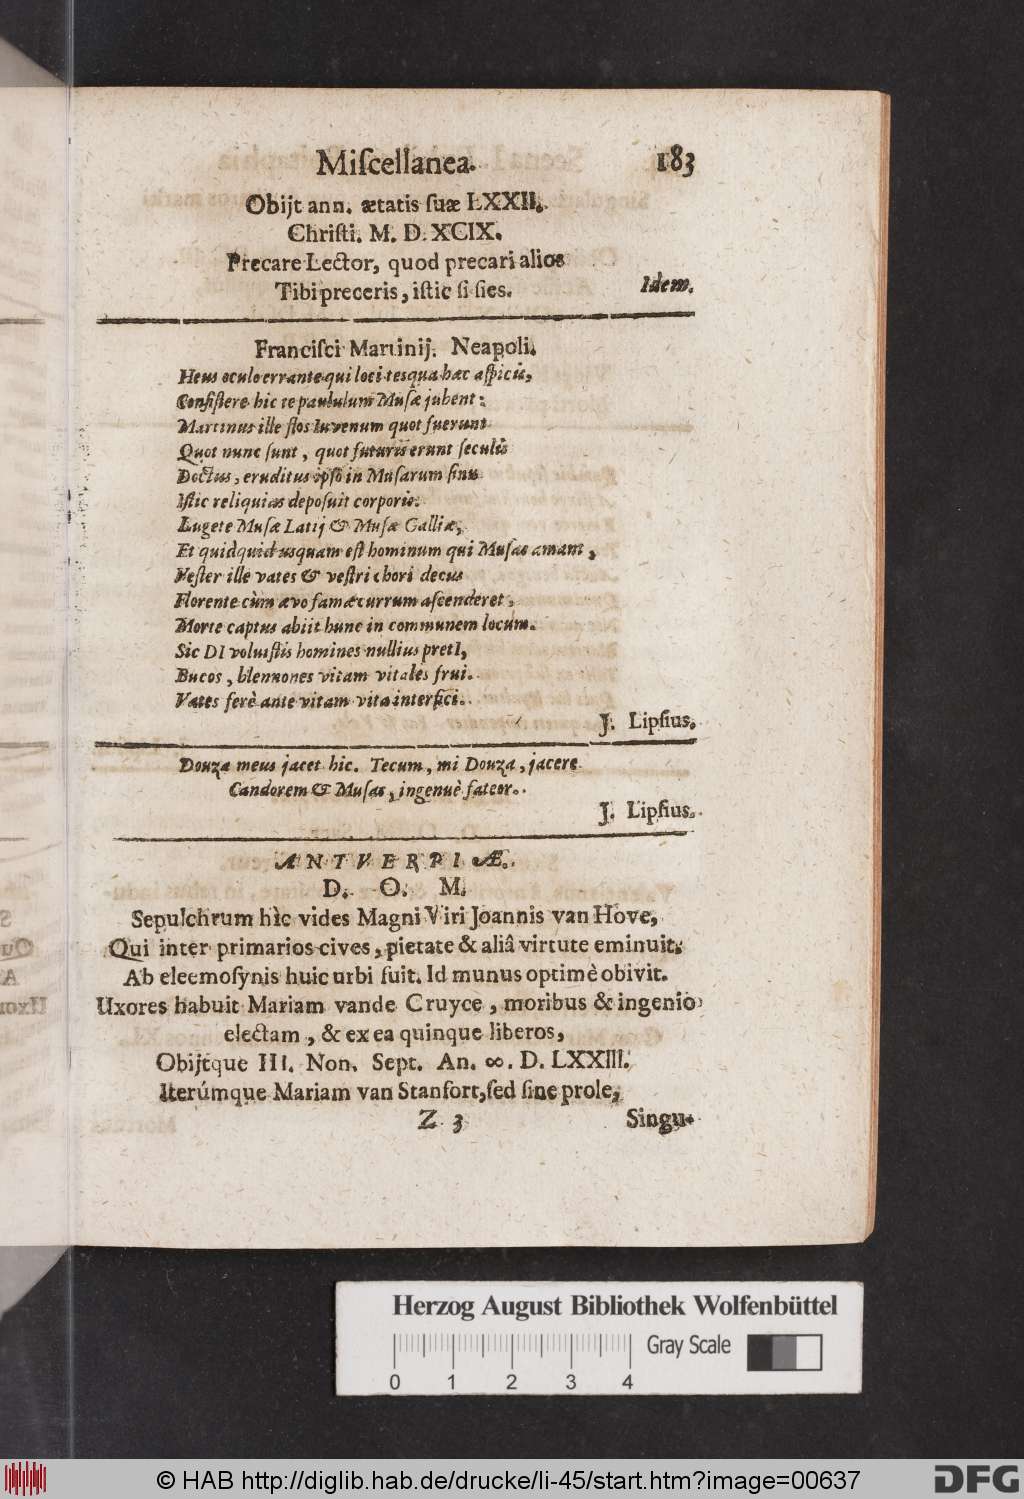 Miſcellanea. 183
Obijt ann. ætatis ſuæ LXXII.
Chriſti. M. D. XCIX.
Precare Lector, quod precari alios
Tibi preceris, iſtic ſi ſies. Idem.
Franciſci Martinij. Neapoli.
Heus oculo errante qui loci tesqua hæc aſpicis,
Conſiſtere hic te paululum Muſæ jubent:
Martinus ille flos Iuvenum quot fuerunt
Quot nunc ſunt, quot futuris erunt ſeculis
Doctus, eruditus ipſo in Muſarum ſinu
Iſtic reliquias depoſuit corporis.
Lugete Muſæ Latij & Muſæ Galliæ,
Et quidquid usquam eſt hominum qui Muſas amant,
Veſter ille vates & veſtri chori decus
Florente cùm ævo famæ currum aſcenderet,
Morte captus abiit hunc in communem locum.
Sic DI voluiſtis homines nullius pretI,
Bucos, blennones vitam vitales frui.
Vates ferè ante vitam vita interfici.
J. Lipſius.
Douza meus jacet hic. Tecum, mi Douza, jacere
Candorem & Muſas, ingenuè fateor.
J. Lipſius.
ANTVERPIÆ.
D. O. M.
Sepulchrum hìc vides Magni Viri Joannis van Hove,
Qui inter primarios cives, pietate & aliâ virtute eminuit:
Ab eleemoſynis huic urbi fuit. Id munus optimè obivit.
Uxores habuit Mariam vande Cruyce, moribus & ingenio
electam, & ex ea quinque liberos,
Obijtque III. Non. Sept. An. ∞. D. LXXIII.
Iterúmque Mariam van Stanfort, ſed ſine prole,
Z 3 Singu-
Herzog August Bibliothek Wolfenbüttel
Gray Scale
0 1 2 3 4
© HAB http://diglib.hab.de/drucke/li-45/start.htm?image=00637
DFG